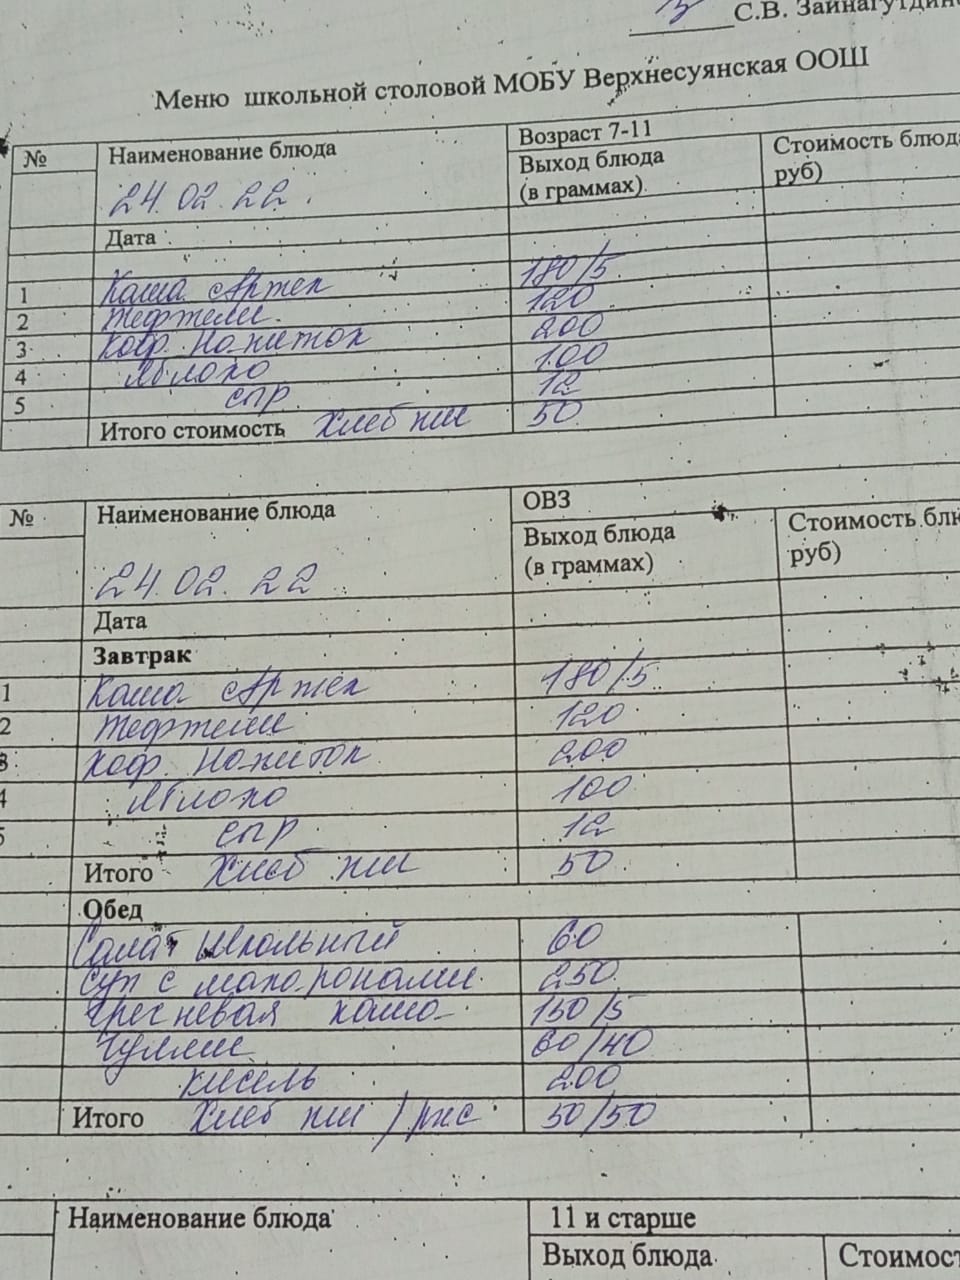 С.В. Зайнагутдин
Меню школьной столовой МОБУ Верхнесуянская ООШ
№ Наименование блюда Возраст 7-11
Выход блюда (в граммах) Стоимость блюда руб)
24.02.22.
Дата
1 Каша Артек 180/5
2 Тефтели 120
3 Коф. Напиток 200
4 Яблоко 100
5 сыр 12
Итого стоимость Хлеб пш 50
№ Наименование блюда ОВЗ
Выход блюда (в граммах) Стоимость блю руб)
24.02.22
Дата
Завтрак
1 Каша Артек 180/5
2 Тефтели 120
3 Коф. Напиток 200
4 Яблоко 100
5 сыр 12
Итого Хлеб пш 50
Обед
Салат Школьный 60
Суп с макаронами 250
Гречневая каша 150/5
Гуляш 60/40
кисель 200
Итого Хлеб пш / рж 50/50
Наименование блюда 11 и старше
Выход блюда Стоимост